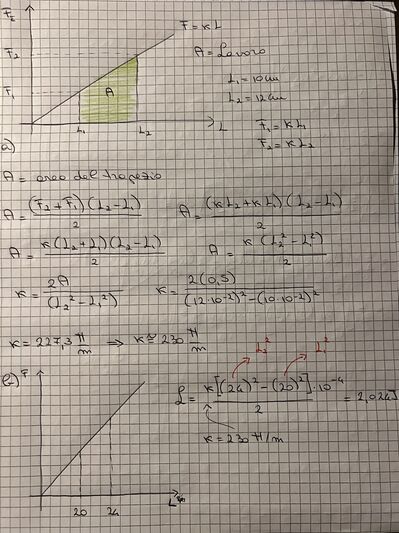 F_E
F = KL
F_2
A = Lavoro
F_1
A
L_1 = 10 cm
L_2 = 12 cm
L_1
L_2
L
F_1 = KL_1
F_2 = KL_2
a)
A = area del trapezio
A = (F_2 + F_1)(L_2 - L_1) / 2
A = (KL_2 + KL_1)(L_2 - L_1) / 2
A = K(L_2 + L_1)(L_2 - L_1) / 2
A = K(L_2^2 - L_1^2) / 2
K = 2A / (L_2^2 - L_1^2)
K = 2(0,5) / (12·10^-2)^2 - (10·10^-2)^2
K = 227,3 N/m ⇒ K ≅ 230 N/m
L_2^2
L_1^2
b) F
L = K[(24)^2 - (20)^2]·10^-4 / 2 = 2,024J
K = 230 N/m
20
24
L